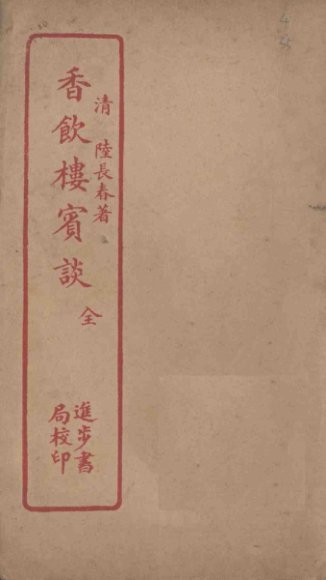 清 陸長春著
香飲樓賓談 全
進步書
局校印